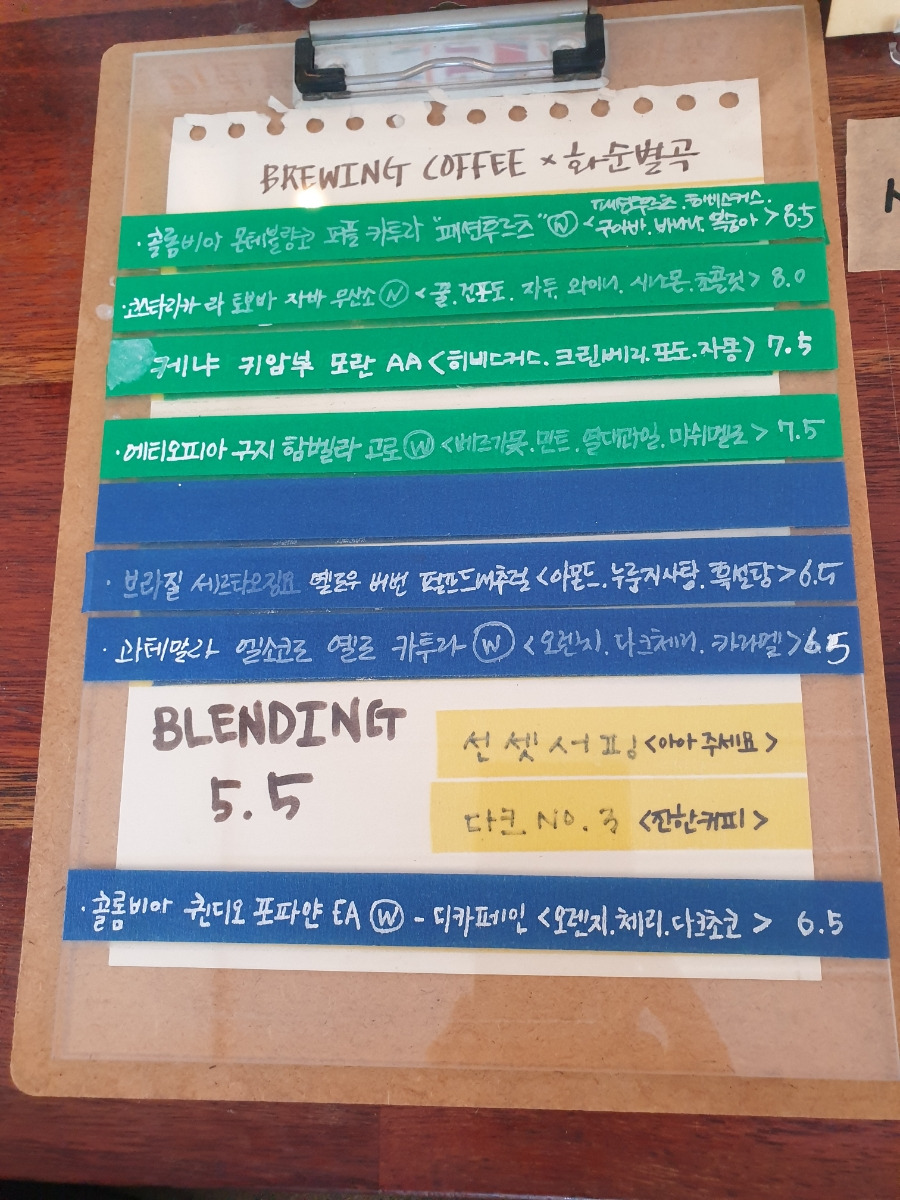 BREWING COFFEE × 화순별곡
· 콜롬비아 몬테블랑코 퍼플 카투라 "패션후르츠" Ⓦ <패션후르츠. 히비스커스. 구아바. 바나나. 복숭아> 8.5
· 코스타리카 라 토보바 자바 무산소 Ⓝ <꿀. 건포도. 자두. 와이니. 시나몬. 초콜릿> 8.0
케냐 키암부 포란 AA <히비스커스. 크린베리. 포도. 자몽> 7.5
· 에티오피아 구지 함벨라 고로 Ⓦ <베르가못. 민트. 열대과일. 마쉬멜로> 7.5
· 브라질 세르타오징요 옐로우 버번 펄프드내추럴 <아몬드. 누룽지사탕. 흑설탕> 6.5
· 과테말라 엘소코로 옐로 카투라 Ⓦ <오렌지. 다크체리. 카라멜> 6.5
BLENDING
5.5
선셋서핑 <아아 주세요>
다크 NO. 3 <찐한커피>
· 콜롬비아 퀸디오 포파얀 EA Ⓦ - 디카페인 <오렌지. 체리. 다크초코> 6.5